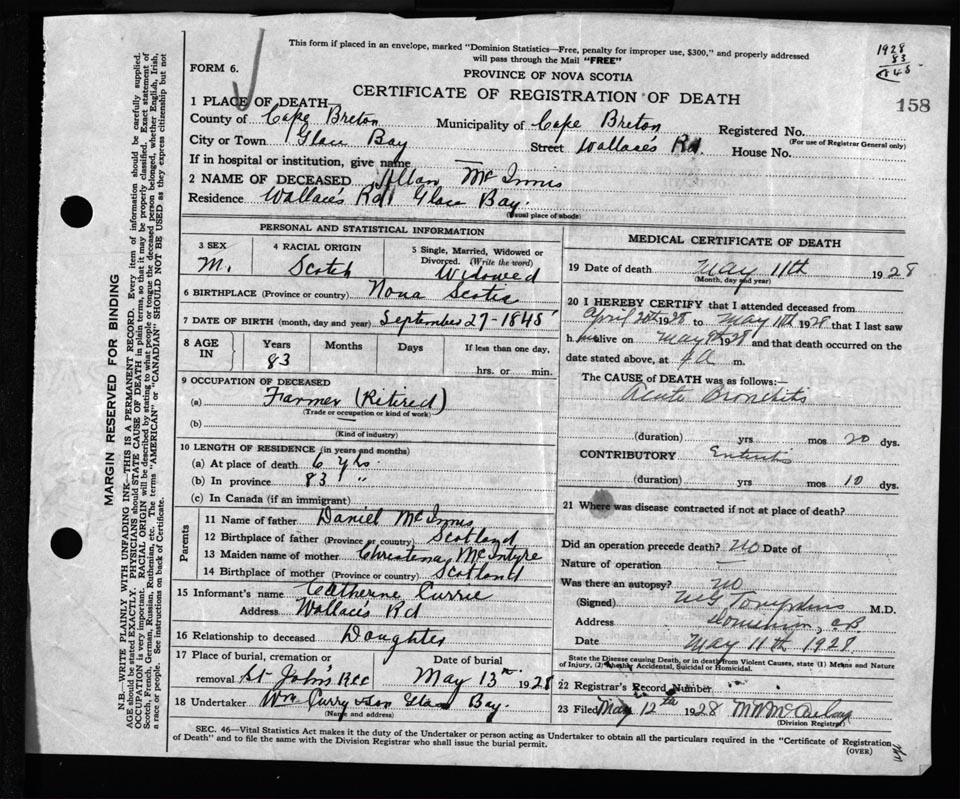 This form if placed in an envelope, marked "Dominion Statistics—Free, penalty for improper use, $300," and properly addressed
will pass through the Mail "FREE"
1928
83
1845
FORM 6.
PROVINCE OF NOVA SCOTIA
CERTIFICATE OF REGISTRATION OF DEATH
158
1 PLACE OF DEATH—
County of Cape Breton Municipality of Cape Breton Registered No.
(For use of Registrar General only)
City or Town Glace Bay Street Wallace's Rd. House No.
If in hospital or institution, give name —
2 NAME OF DECEASED Allan McInnis
Residence Wallace's Rd Glace Bay.
(Usual place of abode)
PERSONAL AND STATISTICAL INFORMATION
3 SEX 4 RACIAL ORIGIN 5 Single, Married, Widowed or Divorced. (Write the word)
M. Scotch Widowed
6 BIRTHPLACE (Province or country) Nova Scotia
7 DATE OF BIRTH (month, day and year) September 27-1845
8 AGE IN Years Months Days If less than one day,
83 hrs. or min.
9 OCCUPATION OF DECEASED
(a) Farmer (Ritired)
(Trade or occupation or kind of work)
(b)
(Kind of industry)
10 LENGTH OF RESIDENCE (in years and months)
(a) At place of death 6 yrs.
(b) In province 83 "
(c) In Canada (if an immigrant)
Parents
11 Name of father Daniel McInnis
12 Birthplace of father (Province or country) Scotland
13 Maiden name of mother Christena McIntyre
14 Birthplace of mother (Province or country) Scotland
15 Informant's name Catherne Currie
Address Wallace's Rd
16 Relationship to deceased Daughter
17 Place of burial, cremation or removal Date of burial
St John's May 13th 1928
18 Undertaker Wm Curry & Son Glace Bay.
(Name and address)
MEDICAL CERTIFICATE OF DEATH
19 Date of death May 11th 1928
(Month, day and year)
20 I HEREBY CERTIFY that I attended deceased from
April 20th 1928 to May 11th 1928 that I last saw
h im alive on May 9th 28 and that death occurred on the
date stated above, at A m.
The CAUSE of DEATH was as follows:—
Acute Bronchitis
(duration) yrs mos 20 dys.
CONTRIBUTORY Enteritis
(duration) yrs mos 10 dys.
21 Where was disease contracted if not at place of death?
Did an operation precede death? No Date of
Nature of operation —
Was there an autopsy? No
(Signed) M.D.
Address C.B.
Date May 11th 1928.
State the Disease causing Death, or in death from Violent Causes, state (1) Means and Nature
of Injury, (2) Whether Accidental, Suicidal or Homicidal.
22 Registrar's Record Number
23 Filed May 12th 1928
(Division Registrar)
SEC. 46—Vital Statistics Act makes it the duty of the Undertaker or person acting as Undertaker to obtain all the particulars required in the "Certificate of Registration
of Death" and to file the same with the Division Registrar who shall issue the burial permit.
(OVER)
MARGIN RESERVED FOR BINDING
N.B.—WRITE PLAINLY WITH UNFADING INK—THIS IS A PERMANENT RECORD. Every item of information should be carefully supplied.
AGE should be stated EXACTLY. PHYSICIANS should STATE CAUSE OF DEATH in plain terms, so that it may be properly classified. Exact statement of
OCCUPATION is very important. RACIAL ORIGIN will be described by stating to what people or tongue the deceased person belonged, whether English, Irish,
Scotch, French, German, Russian, Ruthenian, etc. The terms "AMERICAN" or "CANADIAN" SHOULD NOT BE USED as they express citizenship but not
a race or people. See instructions on back of Certificate.